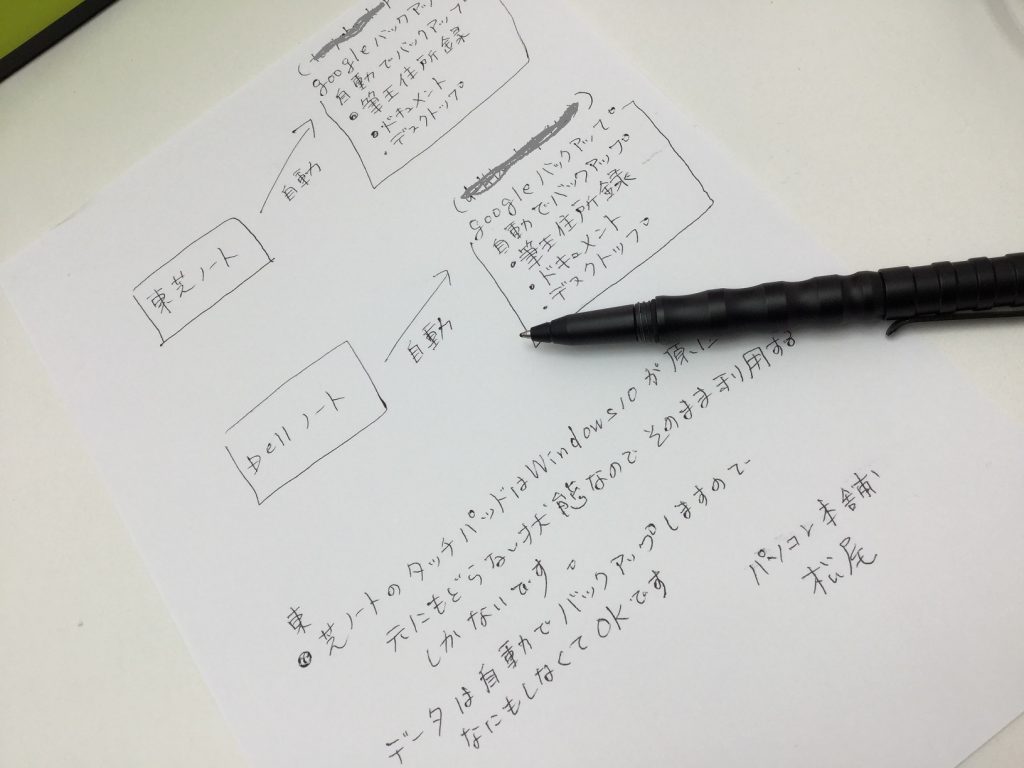 googleバックアップ
自動でバックアップ
• 筆王住所録
• ドキュメント
• デスクトップ
自動
東芝ノート
googleバックアップ
自動でバックアップ
• 筆王住所録
• ドキュメント
• デスクトップ
自動
Dellノート
東
芝ノートのタッチパッドはWindows10が原
元にもどらない状態なのでそのまま利用する
しかないです。
データは自動でバックアップしますので
なにもしなくてOKです
パソコン本舗
松尾